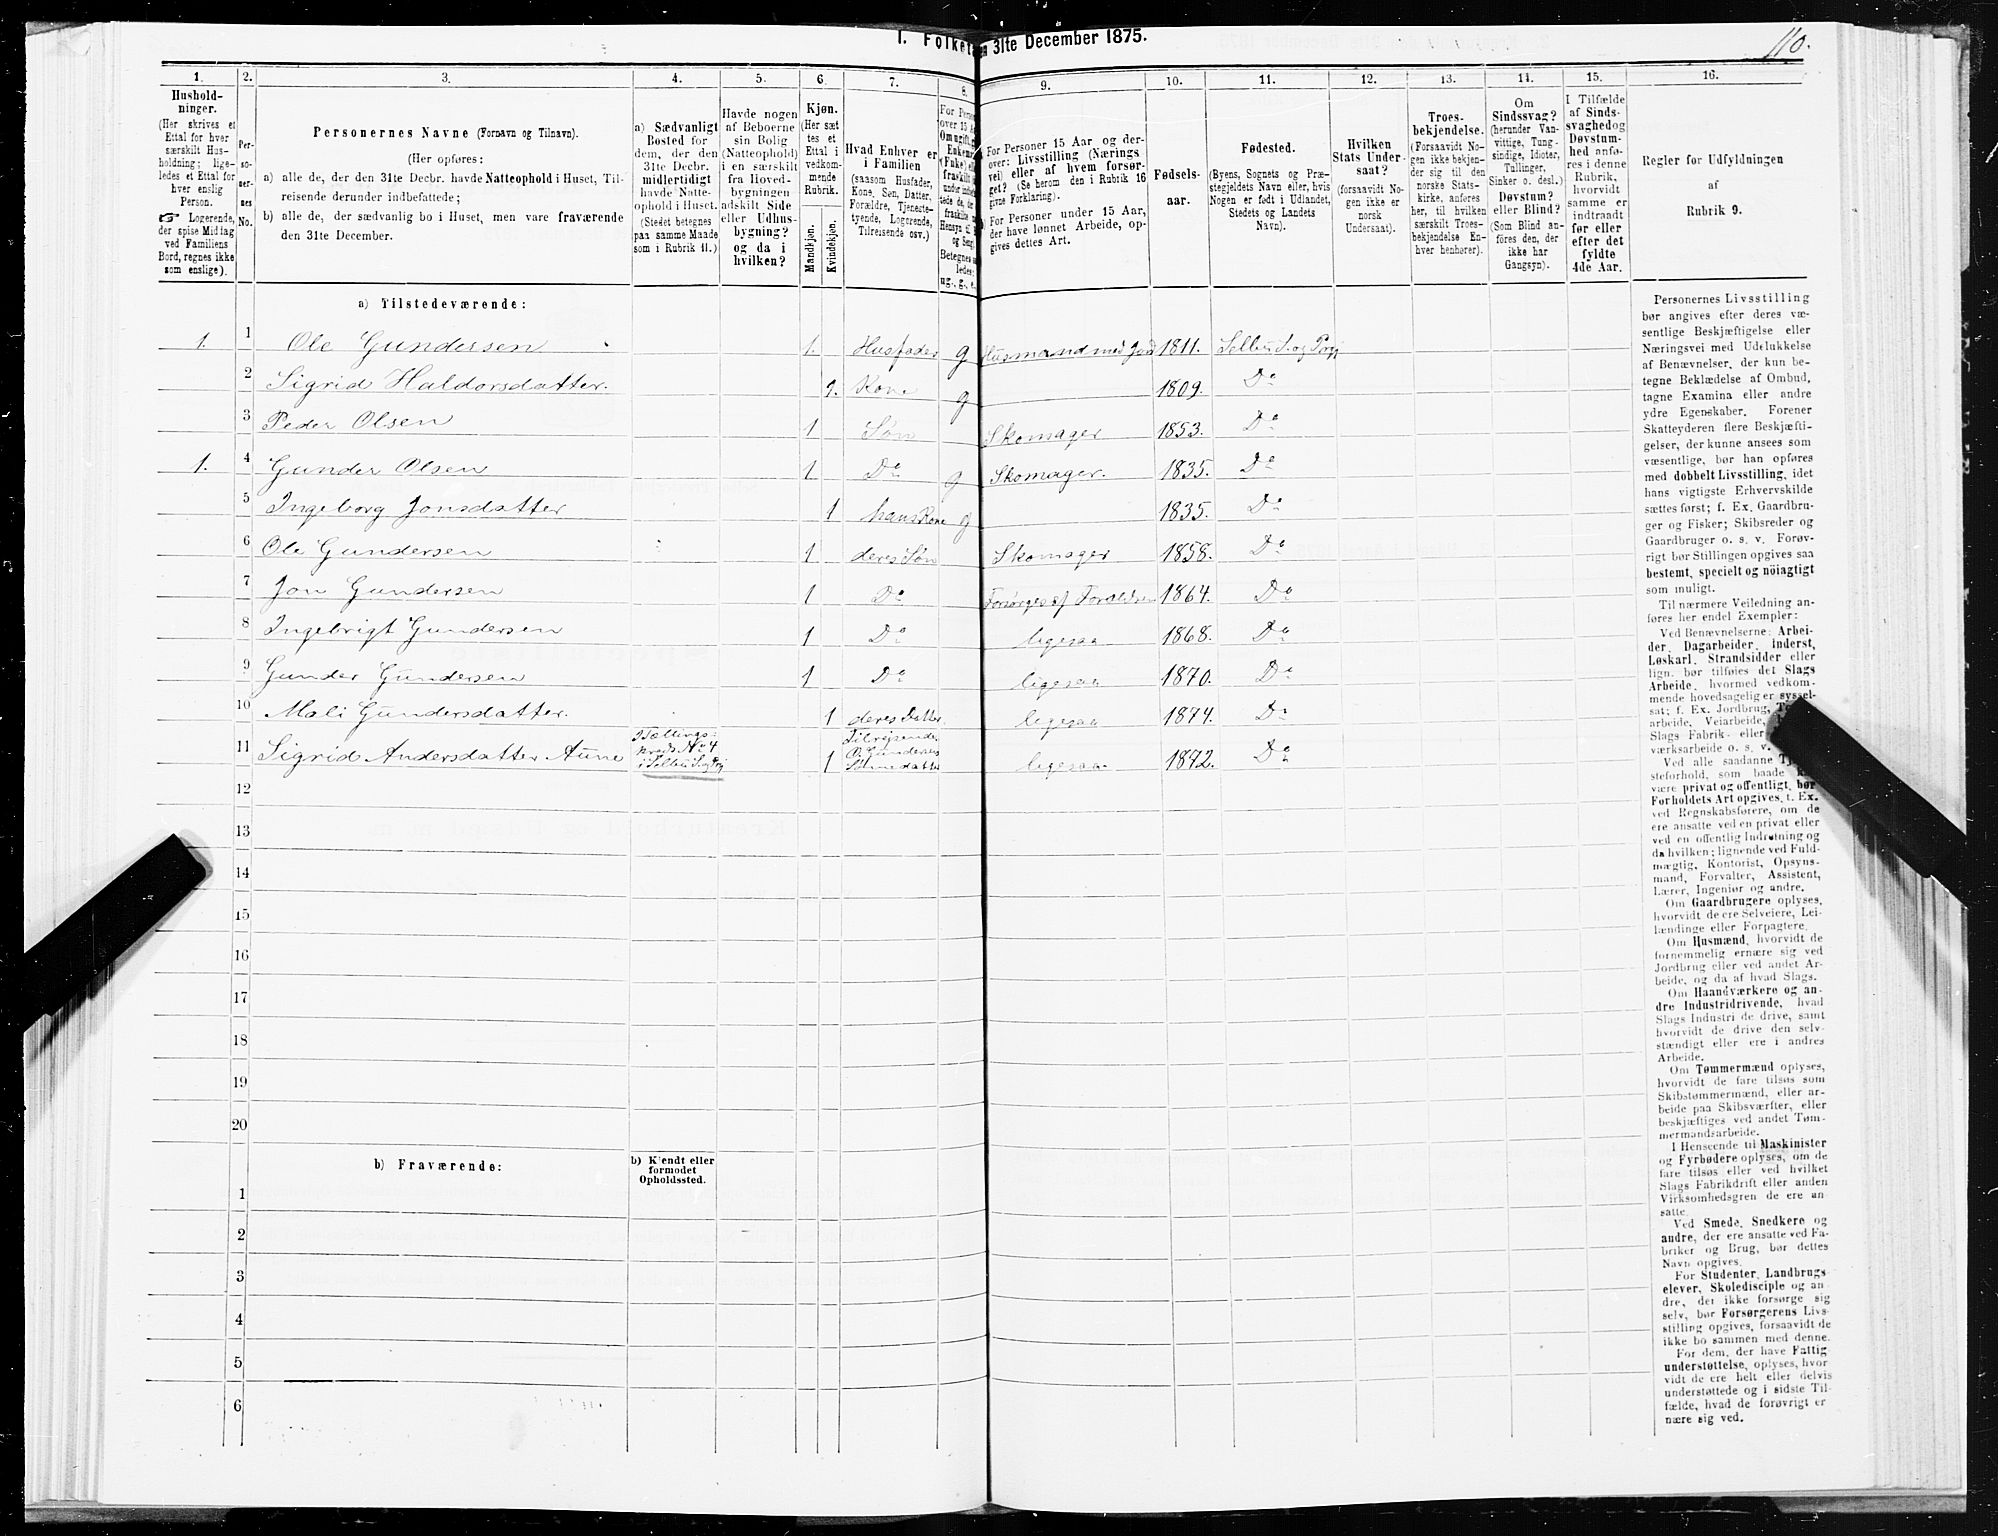 I. Folket
en 31te December 1875.
110.
1.
2.
3.
4.
5.
6.
7.
8.
9.
10.
11.
12.
13.
14.
15.
16.
Hushold-
ninger.
(Her skrives et
Ettal for hver
særskilt Hus-
holdning; lige-
ledes et Ettal for
hver enslig
Person.
☞ Logerende,
der spise Middag
ved Familiens
Bord, regnes ikke
som enslige).
Per-
so-
ner-
nes
No.
Personernes Navne (Fornavn og Tilnavn).
(Her opføres:
a) alle de, der den 31te Decbr. havde Natteophold i Huset, Til-
reisende derunder indbefattede;
b) alle de, der sædvanlig bo i Huset, men vare fraværende
den 31te December.
a) Sædvanligt
Bosted for
dem, der den
31te Decbr.
midlertidigt
havde Natte-
ophold i Huset.
(Stedet betegnes
paa samme Maade
som i Rubrik 11.)
Havde nogen
af Beboerne
sin Bolig
(Natteophold)
i en særskilt
fra Hoved-
bygningen
adskilt Side
eller Udhus-
bygning?
og da i
hvilken?
Kjøn.
(Her sæt
tes et
Ettal i
vedkom-
mende
Rubrik.
Mandkjøn.
Kvindekjøn.
Hvad Enhver er
i Familien
(saasom Husfader,
Kone, Søn, Datter,
Forældre, Tjeneste-
tyende, Logerende,
Tilreisende osv.)
For Person
over 15 A
Om ugift,
Enkem
(Fnke)
fraskilt
Hensyn til
og Seng.
ledes:
ug., g., e.
For Personer 15 Aar og der-
over: Livsstilling (Nærings
vei) eller af hvem forsør-
get? (Se herom den i Rubrik 16
givne Forklaring).
For Personer under 15 Aar,
der have lønnet Arbeide, op-
gives dettes Art.
Fødsels-
aar.
Fødested.
(Byens, Sognets og Præ-
stegjeldets Navn eller, hvis
Nogen er født i Udlandet,
Stedets og Landets
Navn).
Hvilken
Stats Under-
saat?
(forsaavidt No-
gen ikke er
norsk
Undersaat).
Troes-
bekjendelse.
(Forsaavidt No-
gen ikke bekjen-
der sig til den
norske Stats-
kirke, anføres
her, til hvilken
særskilt Troes-
bekjendelse En-
hver henhører).
Om
Sindssvag?
(herunder Van-
vittige, Tung-
sindige, Idioter,
Tullinger,
Sinker o. desl.)
Døvstum?
eller Blind?
(Som Blind an-
føres den, der
ikke har
Gangsyn).
I Tilfælde
af Sinds-
svaghed og
Døvstum-
hed anfø-
res i denne
Rubrik,
hvorvidt
samme er
indtraadt
før eller
efter det
fyldte
4de Aar.
Regler for Udfyldningen
af
Rubrik 9.
a) Tilstedeværende:
1. 1 Ole Gundersen 1. Husfader g Husmand med Jord 1811. Selbu S. og Prgj
2 Sigrid Haldorsdatter. 1. Kone g 1809. Do
3 Peder Olsen 1 Søn Skomager 1853. Do
1. 4 Gunder Olsen 1 Do g Skomager. 1835. Do
5 Ingeborg Jonsdatter 1 hans Kone g 1835. Do
6 Ole Gundersen 1 deres Søn Skomager 1858. Do
7 Jon Gundersen 1 Do Forsørges af Forældrene 1864. Do
8 Ingebrigt Gundersen 1 Do ligesaa 1868. Do
9 Gunder Gundersen 1 Do ligesaa 1870. Do
10 Mali Gundersdatter. 1 deres Datter ligesaa 1874. Do
11 Sigrid Andersdatter Aune Tællings-
kreds No 4
i Selbu S og Prgj 1 Tilreisende
G. Gundersens
ligesaa 1872. Do
12
13
14
15
16
17
18
19
20
b) Fraværende:
b) Kjendt eller
formodet
Opholdssted.
1
2
3
4
5
6
Personernes Livsstilling
bør angives efter deres væ-
sentlige Beskjæftigelse eller
Næringsvei med Udelukkelse
af Benævnelser, der kun be-
tegne Beklædelse af Ombud,
tagne Examina eller andre
ydre Egenskaber. Forener
Skatteyderen flere Beskjæfti-
gelser, der kunne ansees som
væsentlige, bør han opføres
med dobbelt Livsstilling, idet
hans vigtigste Erhvervskilde
sættes først; f. Ex. Gaardbru-
ger og Fisker; Skibsreder og
Gaardbruger o. s. v. Forøv-
rigt bør Stillingen opgives saa
bestemt, specielt og nöiagtigt
som muligt.
Til nærmere Veiledning an-
føres her endel Exempler:
Ved Benævnelserne: Arbei-
der, Dagarbeider, Inderst,
Løskarl, Strandsidder eller
lign. bør tilføies det Slags
Arbeide, hvormed vedkom-
mende hovedsagelig er syssel-
sat; f. Ex. Jordbrug,
arbeide, Veiarbeide,
Slags Fabrik- eller
værksarbeide o. s. v.
Ved alle saadanne
steforhold, som baade
være privat og offentligt, bør
Forholdets Art opgives, t. Ex.
ved Regnskabsførere, om de
ere ansatte ved en privat eller
ved en offentlig Indretning og
da hvilken; lignende ved Fuld-
mægtig, Kontorist, Opsyns-
mand, Forvalter, Assistent,
Lærer, Ingeniør og andre.
Om Gaardbrugere oplyses,
hvorvidt de ere Selveiere, Lei-
lændinge eller Forpagtere.
Om Husmænd, hvorvidt de
fornemmelig ernære sig ved
Jordbrug eller ved andet Ar-
beide, og da af hvad Slags.
Om Haandværkere og an-
dre Industridrivende, hvad
Slags Industri de drive, samt
hvorvidt de drive den selv-
stændigt eller ere i andres
Arbeide.
Om Tømmermænd oplyses,
hvorvidt de fare tilsøs som
Skibstømmermænd, eller ar-
beide paa Skibsværfter, eller
beskjæftiges ved andet Tøm-
mermandsarbeide.
I Henseende til Maskinister
og Fyrbødere oplyses, om de
fare tilsøs eller ved hvilket
Slags Fabrikdrift eller anden
Virksomhedsgren de ere an-
satte.
Ved Smede, Snedkere og
andre, der ere ansatte ved Fa-
briker og Brug, bør dettes
Navn opgives.
For Studenter, Landbrugs
elever, Skoledisciple og an-
dre, der ikke forsørge sig
selv, bør Forsørgerens Livs-
stilling opgives, forsaavidt de
ikke bo sammen med denne.
For dem, der have Fattig
understøttelse, oplyses, hvor
vidt de ere helt eller delvis
understøttede og i sidste Til-
fælde, hvad de forøvrigt er
nære sig ved.